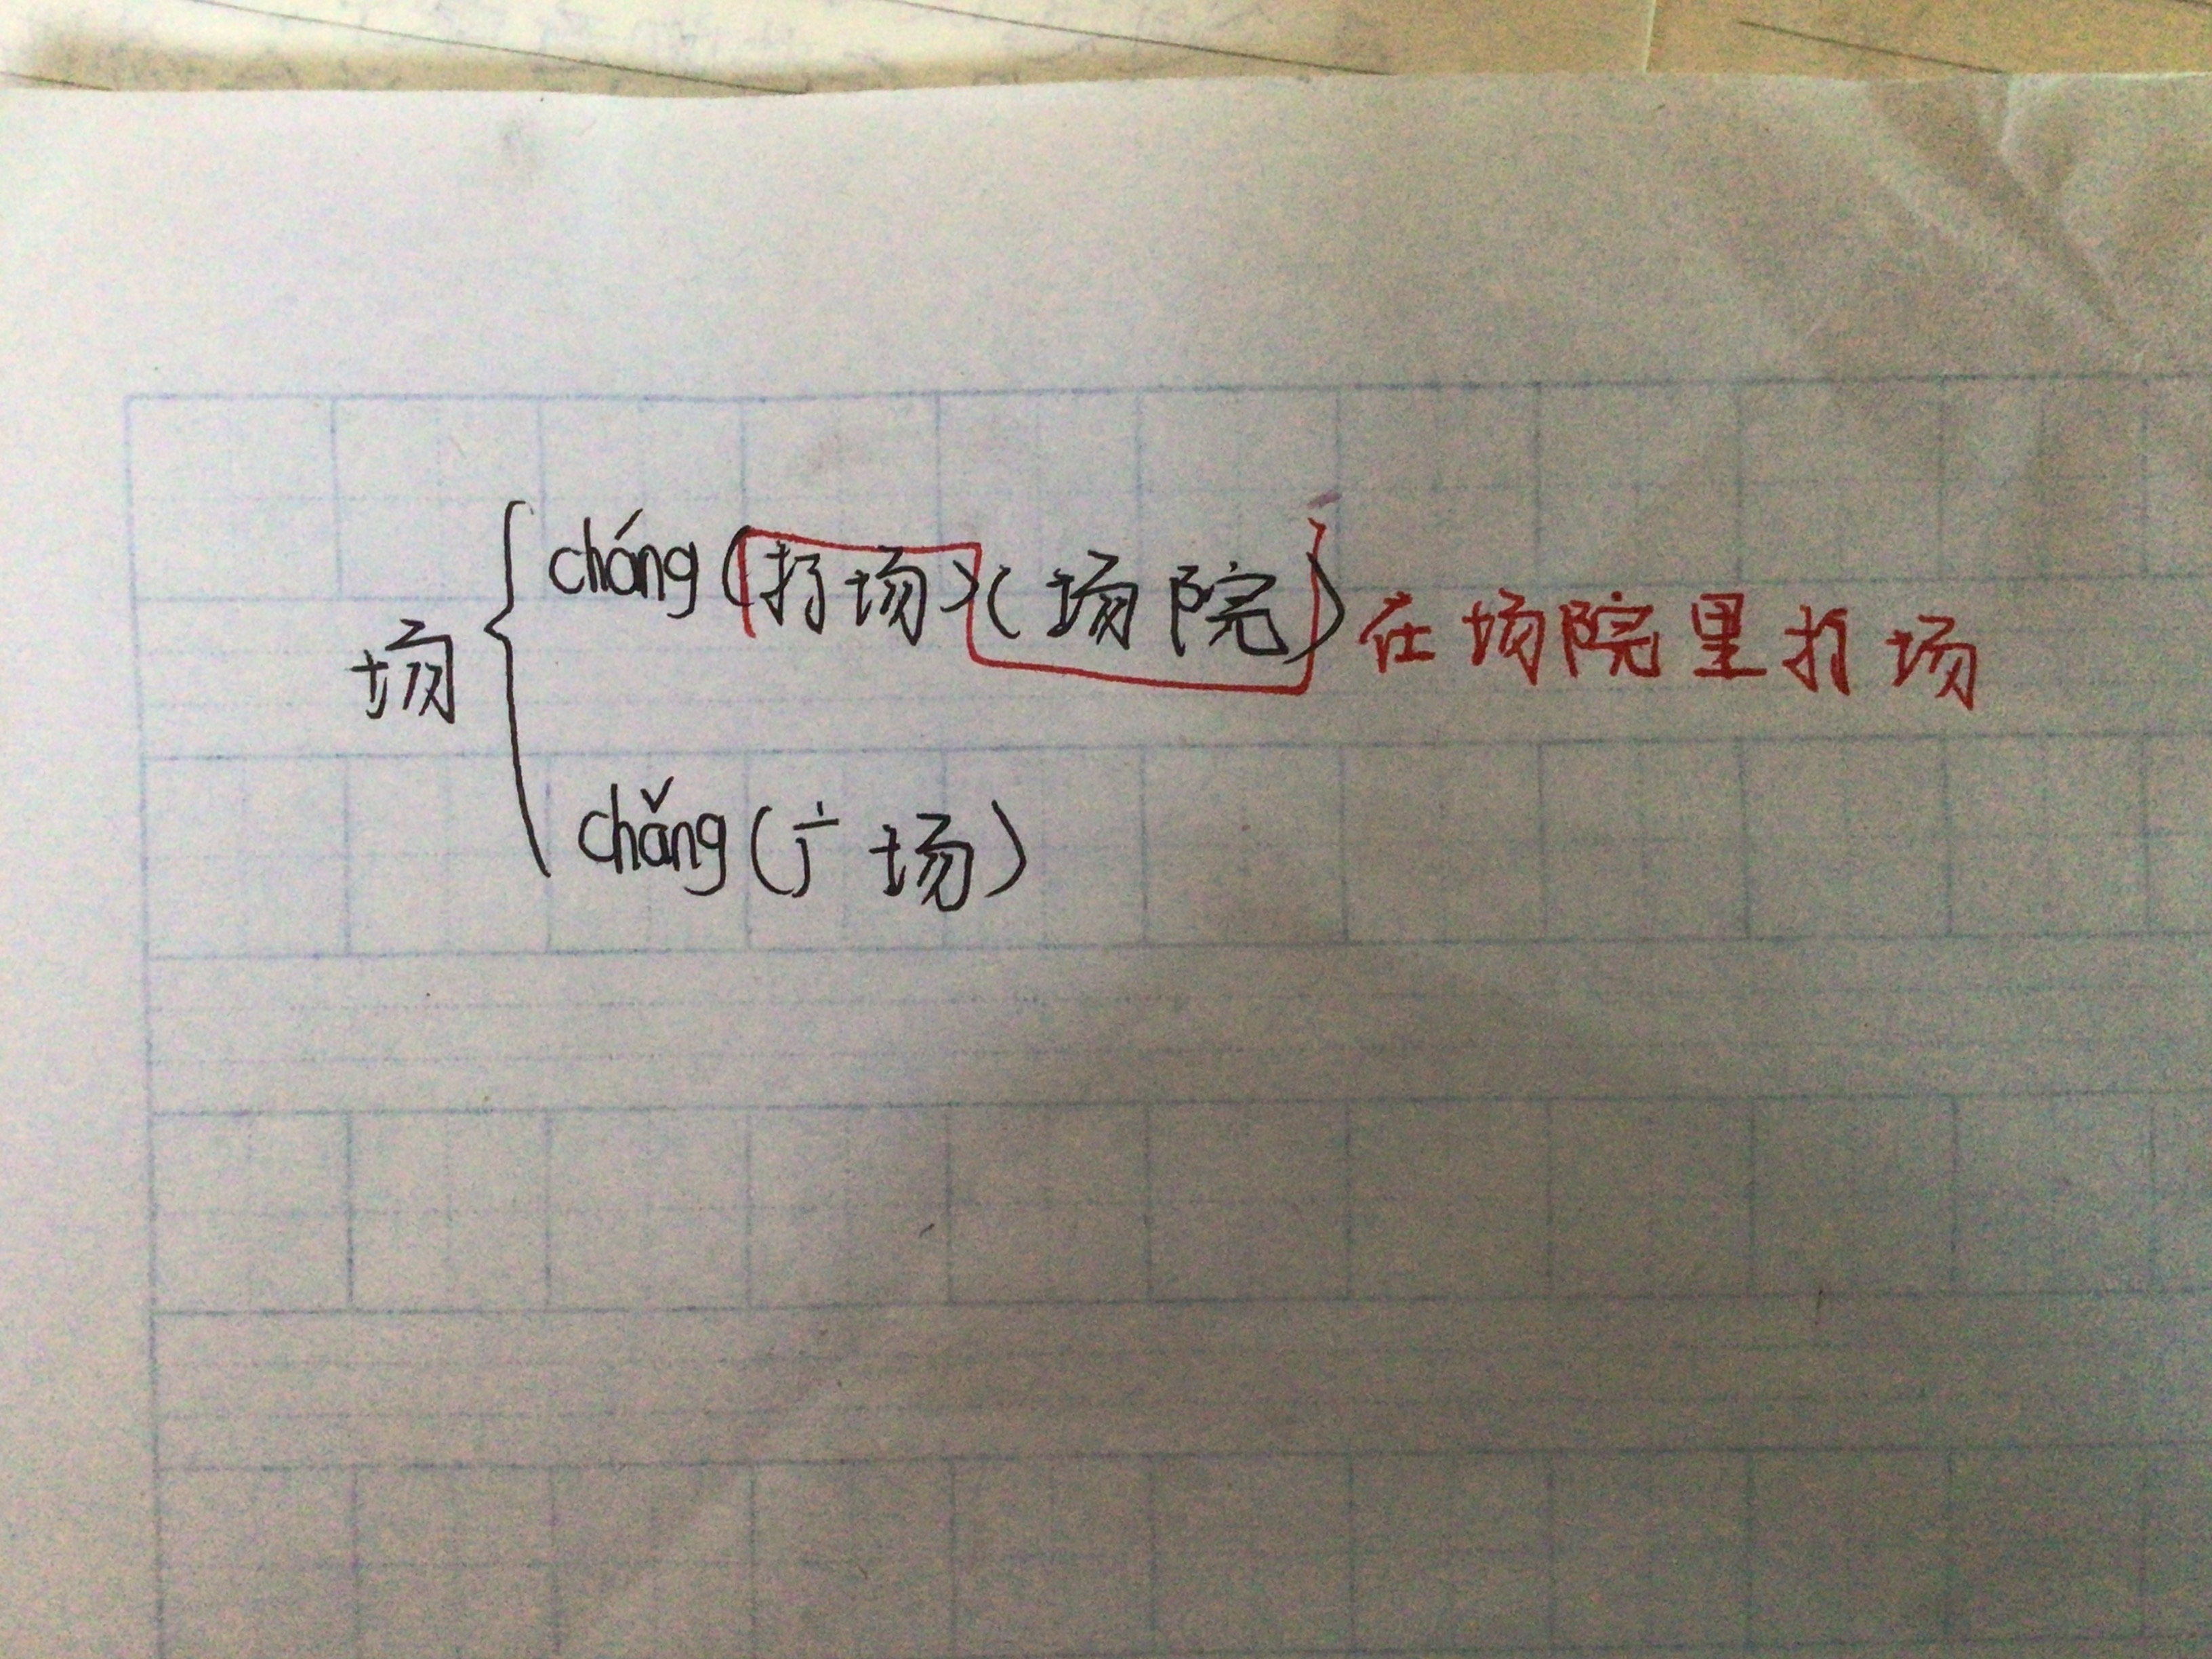 场
cháng (打场) (场院) 在场院里打场
chǎng (广场)